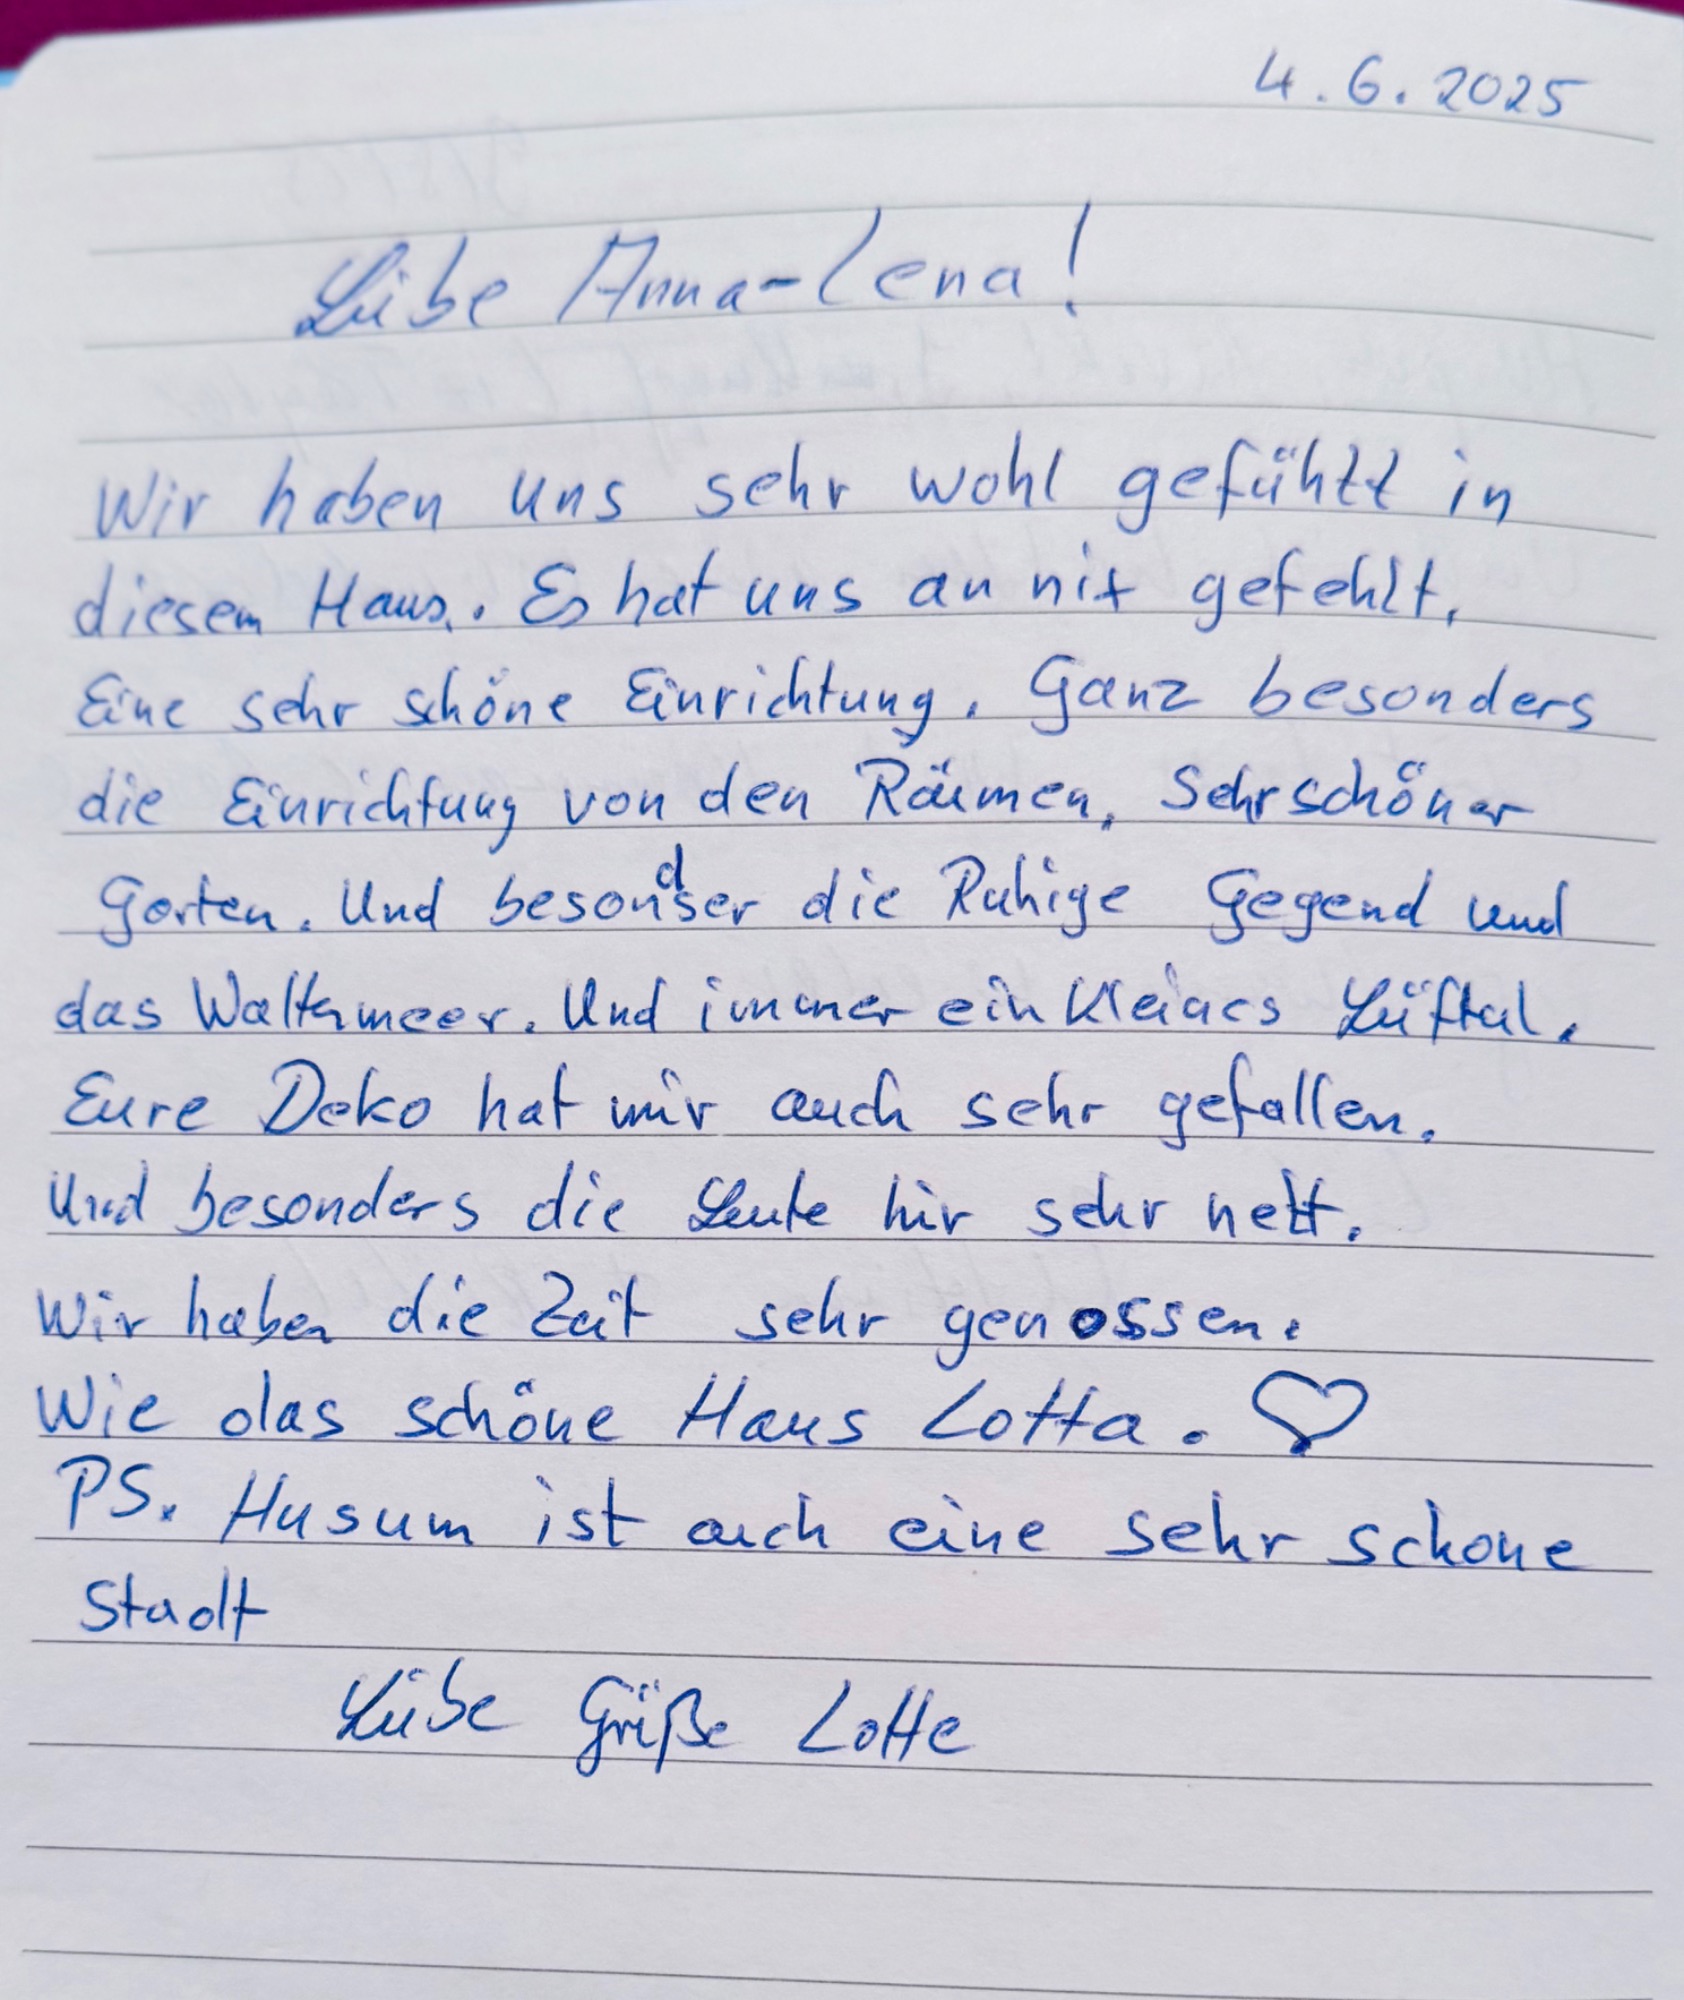 4.6.2025
Liibe Anna-Lena!
Wir haben uns sehr wohl gefühlt in
diesem Haus. Es hat uns an nix gefehlt.
Eine sehr schöne Einrichtung. Ganz besonders
die Einrichtung von den Räumen, Sehr schöner
Garten. Und besondser die Ruhige Gegend und
das Waltenmeer. Und immer ein Kleines Lüftal.
Eure Deko hat mir auch sehr gefallen.
Und besonders die Leute hir sehr nett.
Wir haben die Zeit sehr genossen.
Wie das schöne Haus Lotta. ♡
PS. Husum ist auch eine sehr schone
Stadt
Liibe Grüße Lotte